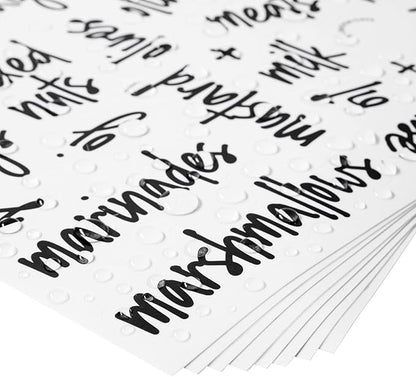 olives
+
milk
+
nuts
mustard
oil
of
marinades
marshmallows